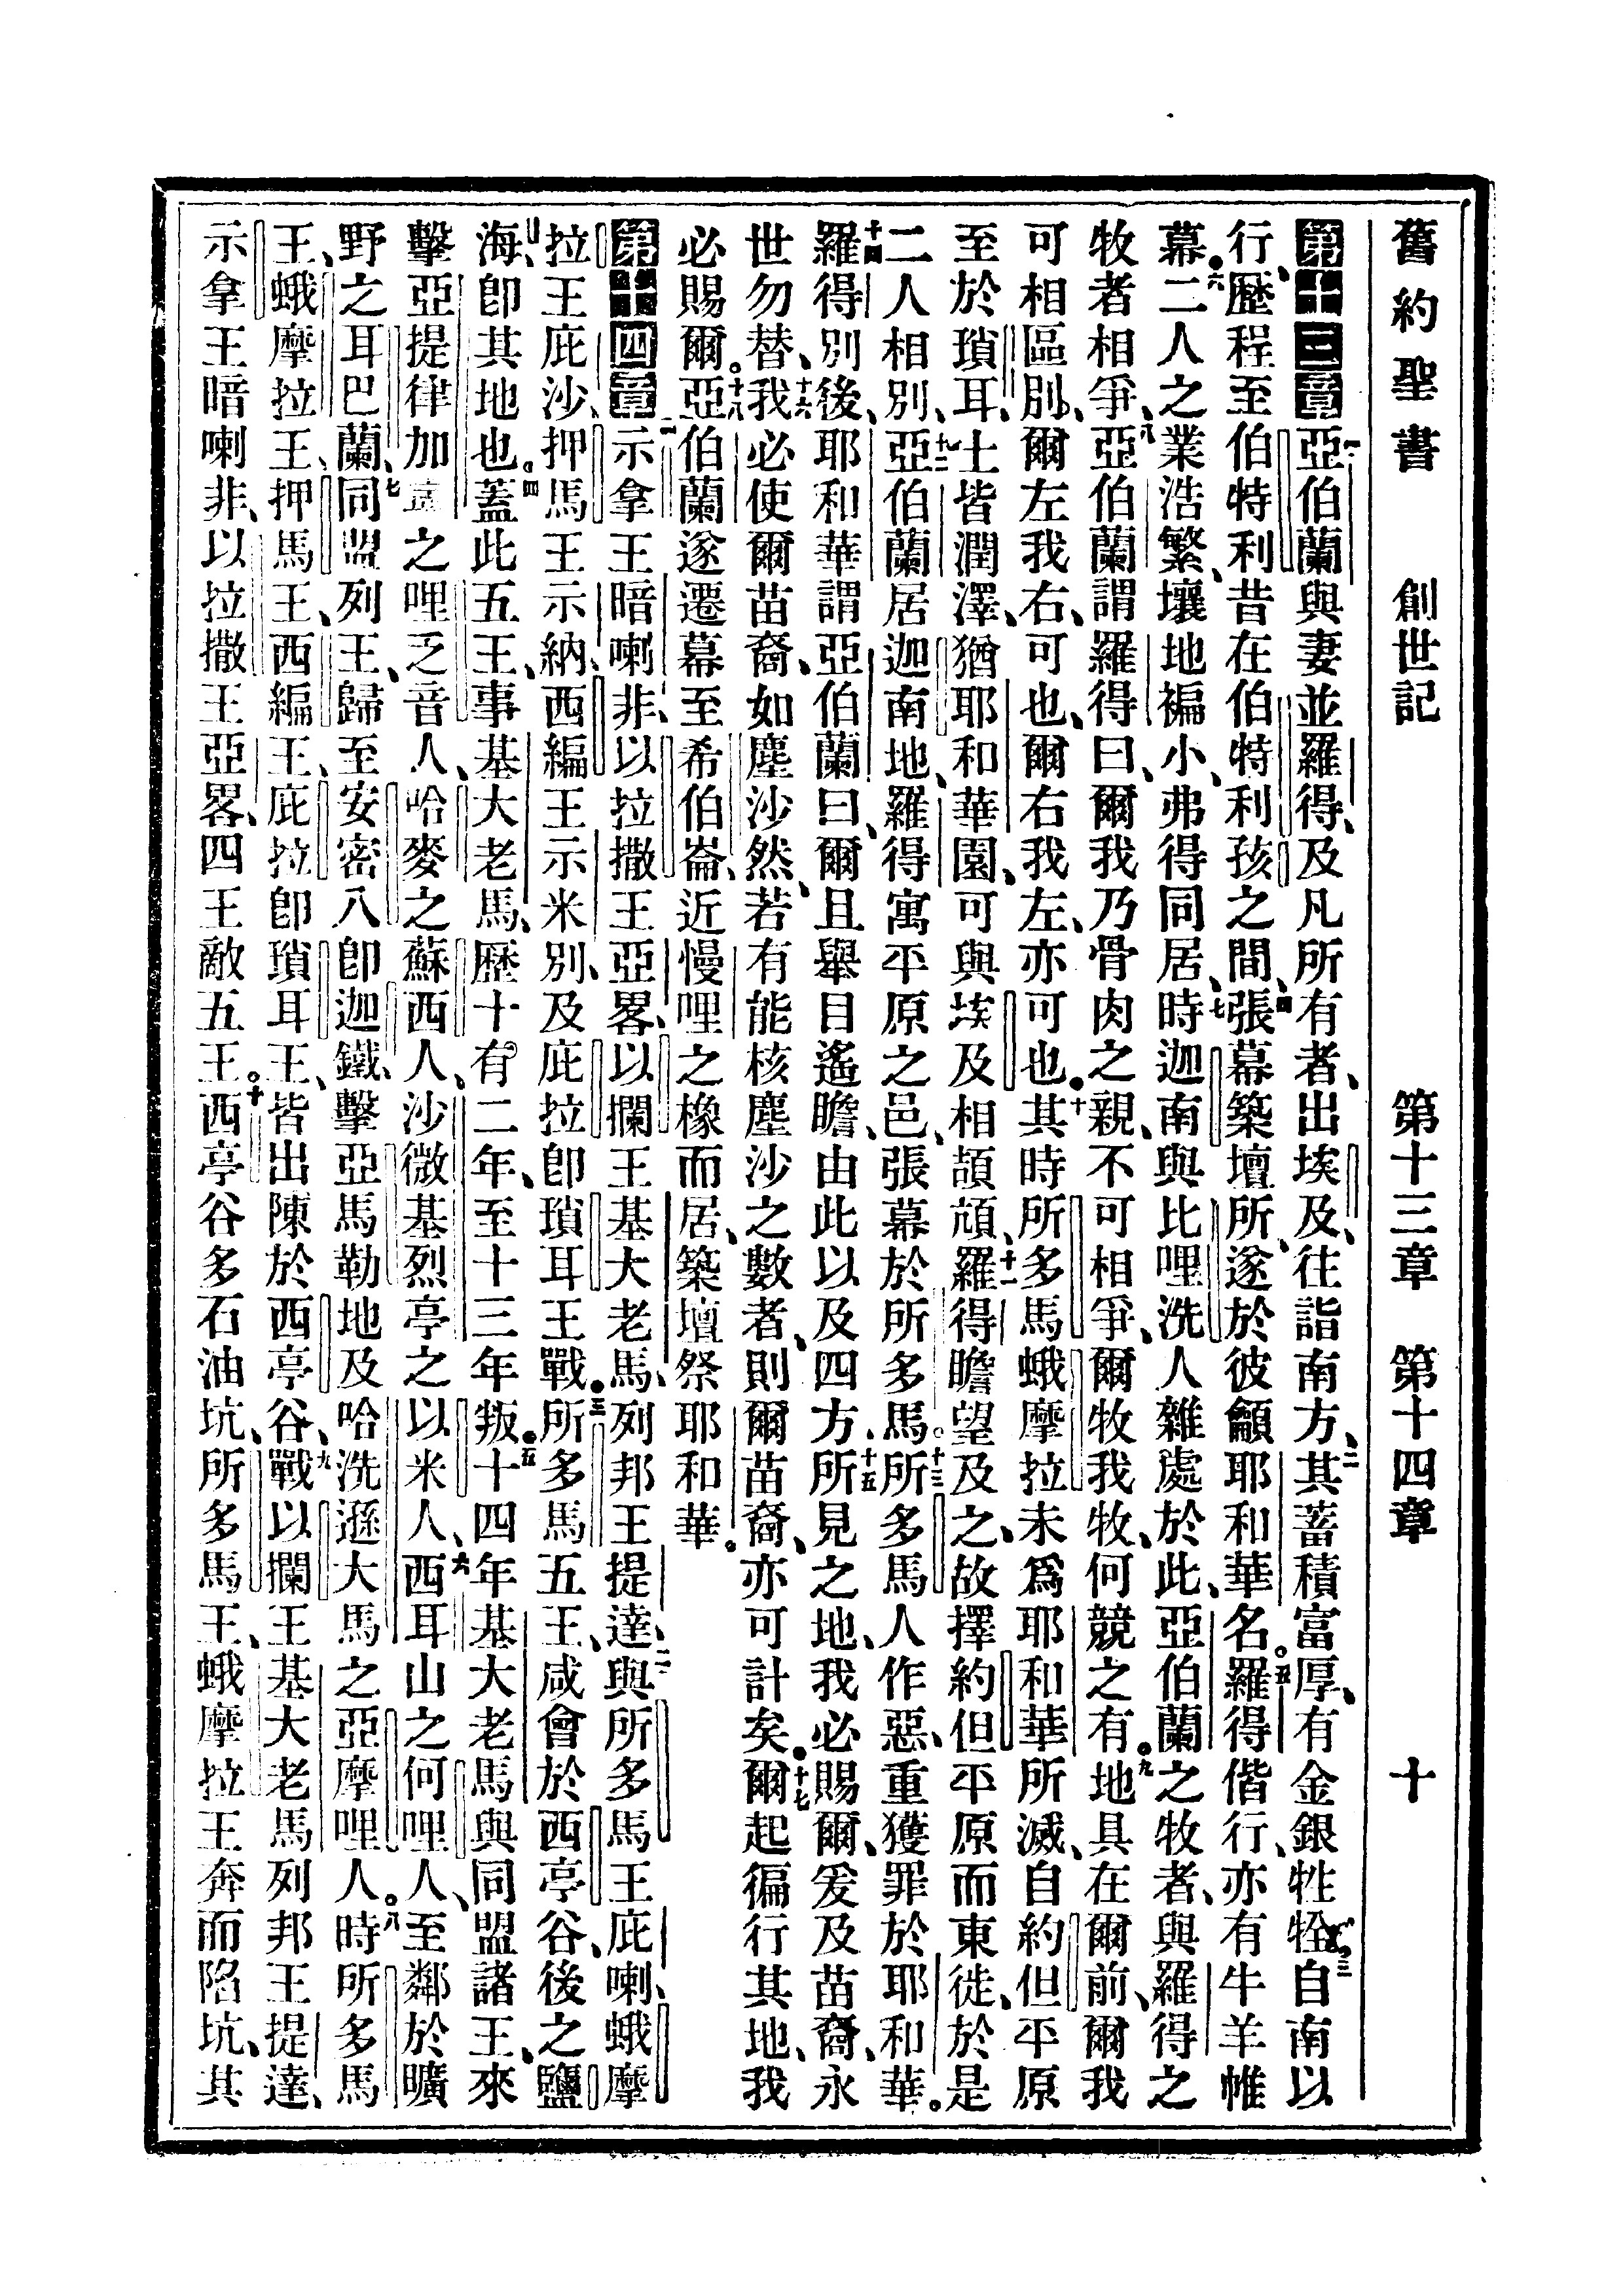 舊約聖書 創世記 第十三章 第十四章 十
第十三章 一亞伯蘭與妻並羅得、及凡所有者、出埃及、往詣南方、二其蓄積富厚、有金銀牲牷、三自南以
行、歷程至伯特利昔在伯特利孩之間、四張幕築壇所、遂於彼龥耶和華名。五羅得偕行、亦有牛羊帷
幕。六二人之業浩繁、壤地褊小、弗得同居、七時迦南與比哩洗人雜處於此、亞伯蘭之牧者、與羅得之
牧者相爭、八亞伯蘭謂羅得曰、爾我乃骨肉之親、不可相爭、爾牧我牧、何競之有。九地具在爾前、爾我
可相區別、爾左我右、可也、爾右我左、亦可也。十其時所多馬蛾摩拉未爲耶和華所滅、自約但平原
至於瑣耳、土皆潤澤、猶耶和華園、可與埃及相頡頏、十一羅得瞻望及之、故擇約但平原而東徙、於是
二人相別、十二亞伯蘭居迦南地、羅得寓平原之邑、張幕於所多馬。十三所多馬人作惡、重獲罪於耶和華。
十四羅得別後、耶和華謂亞伯蘭曰、爾且舉目遙瞻、由此以及四方、十五所見之地、我必賜爾、爰及苗裔、永
世勿替、十六我必使爾苗裔、如塵沙然、若有能核塵沙之數者、則爾苗裔、亦可計矣。十七爾起徧行其地、我
必賜爾。十八亞伯蘭遂遷幕至希伯崙、近慢哩之橡而居、築壇祭耶和華。
第十四章 一示拿王暗喇非、以拉撒王亞畧、以攔王基大老馬、列邦王提達、二與所多馬王庇喇、蛾摩
拉王庇沙、押馬王示納、西編王示米別、及庇拉卽瑣耳王戰。三所多馬五王、咸會於西亭谷、後之鹽
海、卽其地也。四蓋此五王、事基大老馬、歷十有二年、至十三年叛。五十四年基大老馬與同盟諸王、來
擊亞提律加寧之哩乏音人、哈麥之蘇西人、沙微基烈亭之以米人、六西耳山之何哩人、至鄰於曠
野之耳巴蘭、七同盟列王、歸至安密八卽迦鐵、擊亞馬勒地及哈洗遜大馬之亞摩哩人。八時所多馬
王、蛾摩拉王、押馬王、西編王、庇拉卽瑣耳王、皆出陳於西亭谷、九戰以攔王基大老馬列邦王提達、
示拿王暗喇非、以拉撒王亞畧、四王敵五王。十西亭谷多石油坑、所多馬王、蛾摩拉王奔而陷坑、其